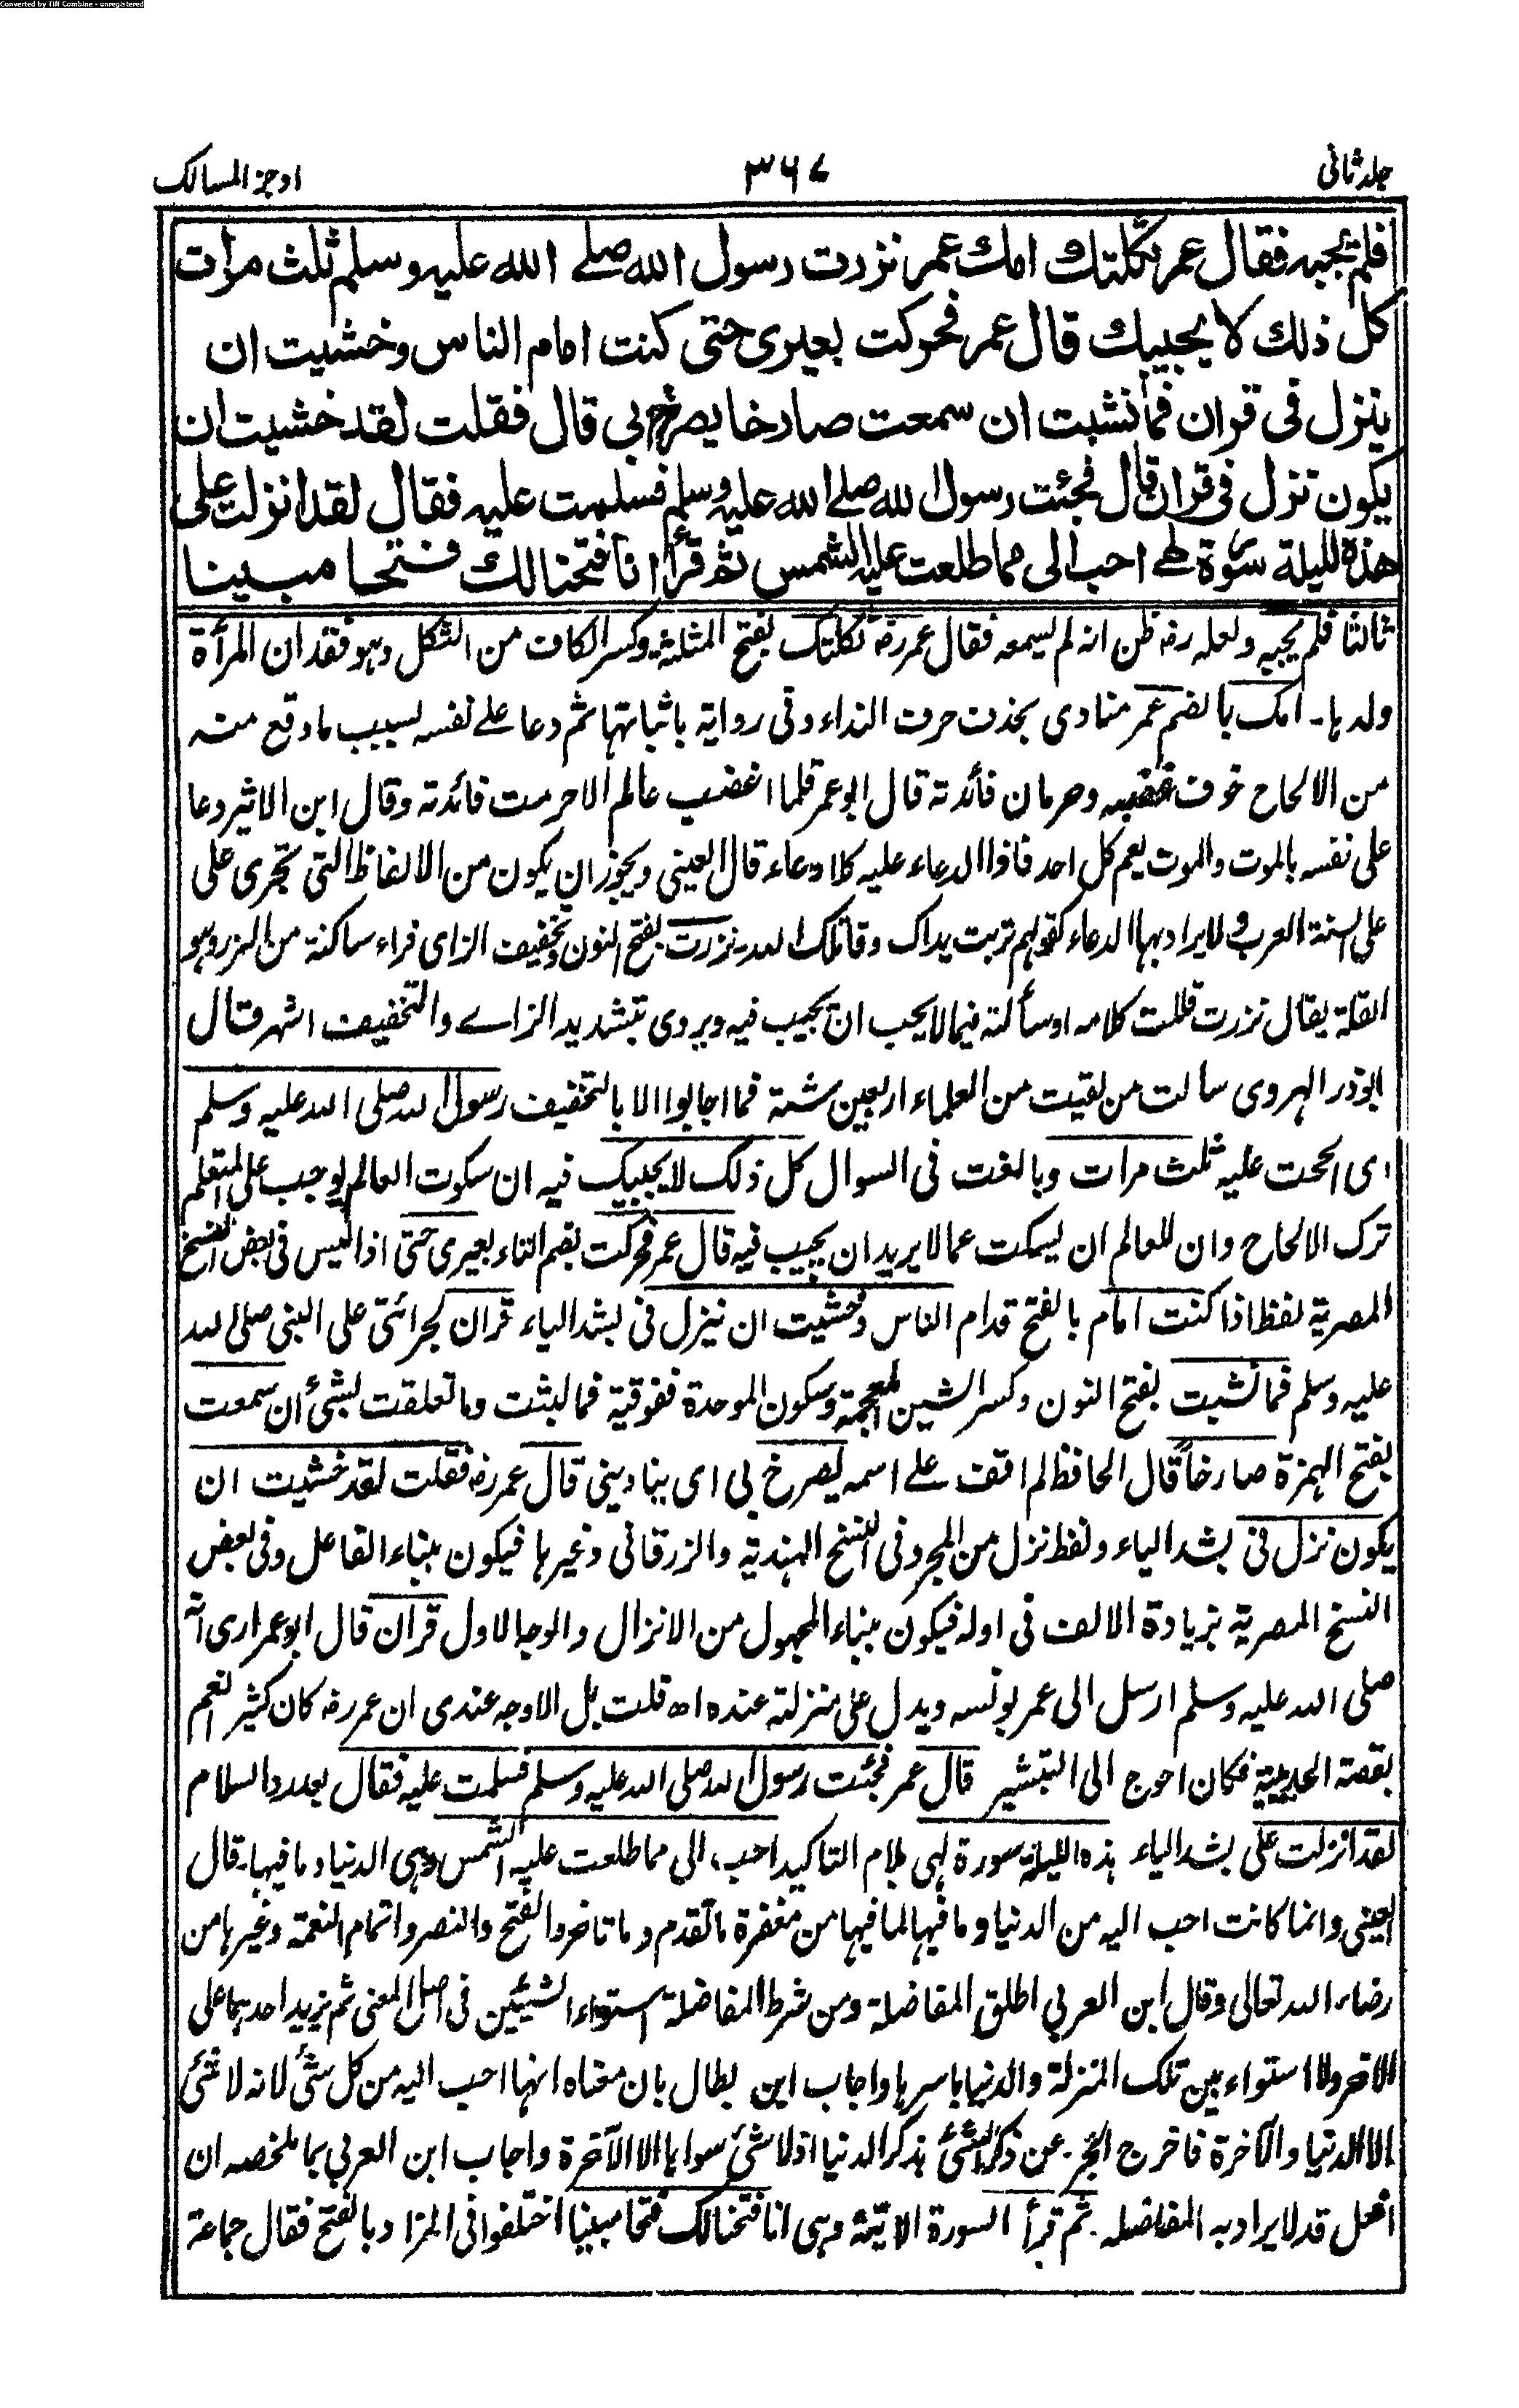 Converted by Tiff Combine - unregistered
جلد ثانی ۳۶۷ اوجز المسالک
فلم يجبه فقال عمر ثكلتك امك عمر نزرت رسول الله صلى الله عليه وسلم ثلث مرات
كل ذلك لا يجيبك قال عمر فحركت بعيرى حتى كنت امام الناس وخشيت ان
ينزل فى قران فما نشبت ان سمعت صارخا يصرخ بى قال فقلت لقد خشيت ان
يكون نزل فى قران قال فجئت رسول الله صلى الله عليه وسلم فسلمت عليه فقال لقد انزلت على
هذه الليلة سورة لهى احب الى مما طلعت عليه الشمس ثم قرأ انا فتحنا لك فتحا مبينا
ثالثا فلم يجبه ولعله رضہ ظن انه لم يسمعه فقال عمر رضہ ثكلتك بفتح المثلثة وكسر الكاف من الثكل وهو فقدان المرأة
ولدها۔ امك بالضم عمر منادى بحذف حرف النداء وفى رواية باثباتها ثم دعا على نفسه بسبب ما وقع منه
من الالحاح خوف غضبه وحرمان فائدته قال ابو عمر قلما اغضب عالم الا حرمت فائدته وقال ابن الاثير دعا
على نفسه بالموت والموت يعم كل احد فاذا الدعاء عليه كلا دعاء قال العينى ويجوز ان يكون من الالفاظ التى تجرى على
على السنة العرب ولا يراد بها الدعاء كقولهم تربت يداك وقاتلك الله۔ نزرت بفتح النون وتخفيف الزاى فراء ساكنة من النزر وهو
القلة يقال نزرت قللت كلامه او سألته فيما لا يحب ان يجيب فيه ويروى بتشديد الزاى والتخفيف اشهر قال
ابوذر الهروى سالت من لقيت من العلماء اربعين سنة فما اجابوا الا بالتخفيف رسول الله صلى الله عليه وسلم
اى الححت عليه ثلث مرات وبالغت فى السوال كل ذلك لا يجيبك فيه ان سكوت العالم يوجب على المتعلم
ترك الالحاح وان للعالم ان يسكت عما لا يريد ان يجيب فيه قال عمر فحركت بضم التاء بعيرى حتى اذا ليس فى بعض النسخ
المصرية لفظ اذا كنت امام بالفتح قدام الناس وخشيت ان ينزل فى بشد الياء قران لجرائتى على النبى صلى الله
عليه وسلم فما نشبت بفتح النون وكسر الشين المعجمة وسكون الموحدة ففوقية فما لبثت وما تعلقت بشئ ان سمعت
بفتح الهمزة صارخاً قال الحافظ لم اقف على اسمه يصرخ بى اى ينادينى قال عمر رضہ فقلت لقد خشيت ان
يكون نزل فى بشد الياء ولفظ نزل من المجرد فى النسخ الهندية والزرقانى وغيرها فيكون ببناء الفاعل وفى بعض
النسخ المصرية بزيادة الالف فى اوله فيكون ببناء المجهول من الانزال والوجه الاول قران قال ابو عمر ارى انه
صلى الله عليه وسلم ارسل الى عمر يونسه ويدل على منزلته عنده اھ قلت بل الاوجه عندى ان عمر رضہ كان كثير الغم
بقصة الحديبية فكان احوج الى التبشير قال عمر فجئت رسول الله صلى الله عليه وسلم فسلمت عليه فقال بعد رد السلام
لقد انزلت على بشد الياء هذه الليلة سورة لهى بلام التاكيد احب الى مما طلعت عليه الشمس وهى الدنيا وما فيها۔ قال
العينى وانما كانت احب اليه من الدنيا وما فيها لما فيها من مغفرة ما تقدم وما تاخر والفتح والنصر واتمام النعمة وغيرها من
رضاء الله تعالى وقال ابن العربى اطلق المفاضلة ومن شرط المفاضلة استواء الشيئين فى اصل المعنى ثم يزيد احدهما على
الاخر ولا استواء بين تلك المنزلة والدنيا باسرها واجاب ابن بطال بان معناه انها احب اليه من كل شئ لانه لا شئ
الا الدنيا والآخرة فاخرج الخبر عن ذكر الشئ بذكر الدنيا اذ لا شئ سواها الا الآخرة واجاب ابن العربى بما ملخصه ان
افعل قد لا يراد به المفاضلة۔ ثم قرأ السورة الاتية وهى انا فتحنا لك فتحا مبينا اختلفوا فى المراد بالفتح فقال جماعة